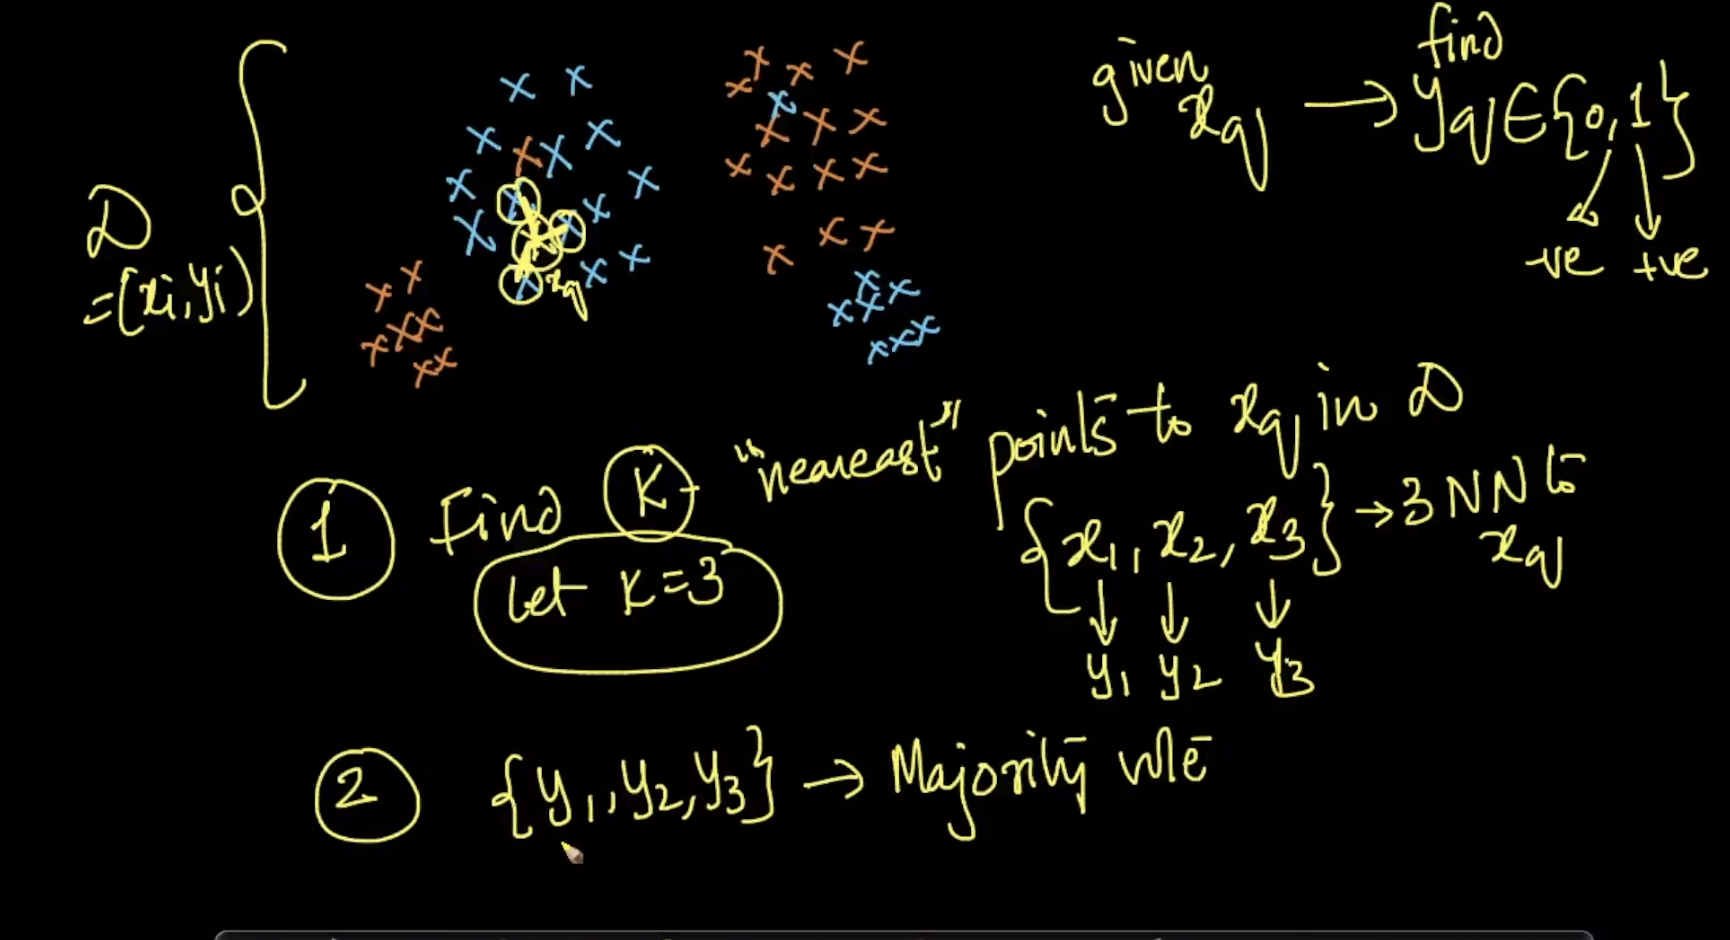 given x_q → find y_q ∈ {0, 1}
-ve +ve
D = (xi, yi)
xq
1 Find K "neareast" points to xq in D
let K=3
{x1, x2, x3} → 3 NN to xq
y1 y2 y3
2 {y1, y2, y3} → Majority vote